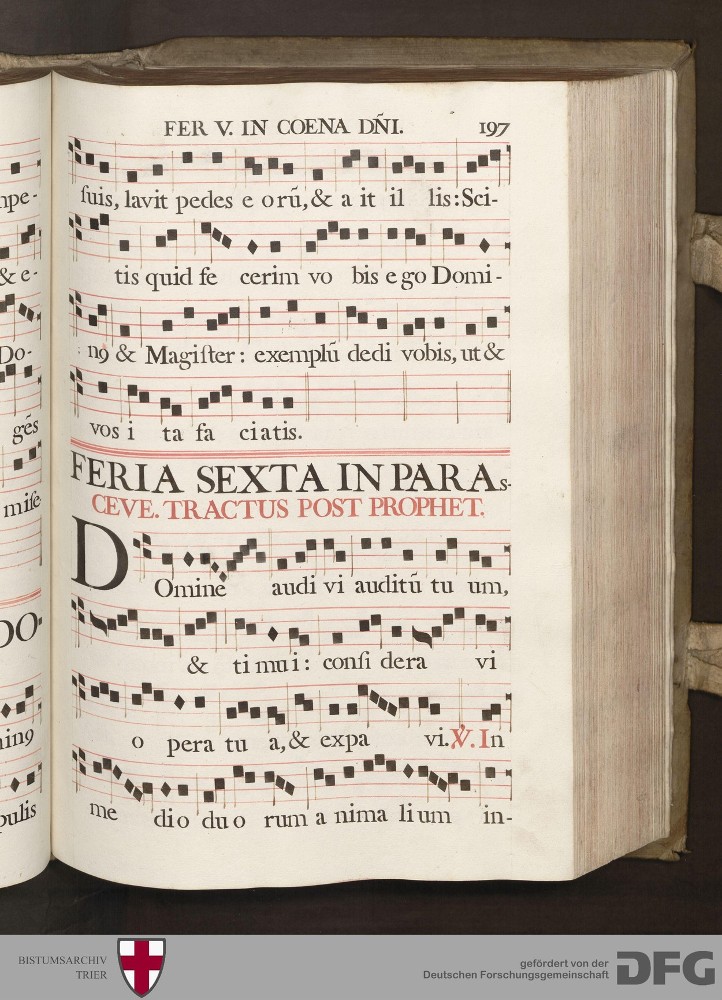 FER V. IN COENA DÑI. 197
ſuis, lavit pedes e orũ, & a it il lis: Sci-
tis quid fe cerim vo bis e go Domi-
nꝰ & Magiſter: exemplũ dedi vobis, ut &
vos i ta fa ciatis.
FERIA SEXTA IN PARAS-
CEVE. TRACTUS POST PROPHET.
DOmine audi vi auditũ tu um,
& ti mu i: conſi dera vi
o pera tu a, & expa vi. ℣. In
me dio du o rum a nima li um in-
mpe-
& e-
Do-
gẽs
miſe
DO-
minꝰ
pulis
BISTUMSARCHIV
TRIER
gefördert von der
Deutschen Forschungsgemeinschaft
DFG